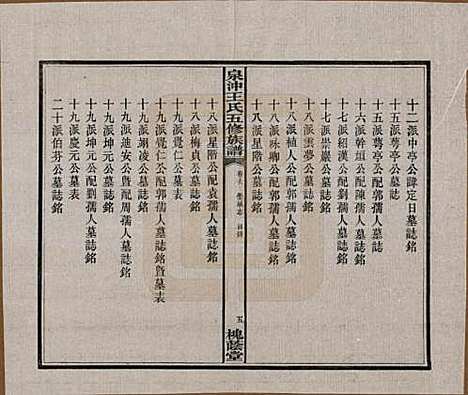 十二派中亭公諱定日墓誌銘
十五派蓴亭公墓誌
十五派蓴亭公配郭孺人墓誌銘
十六派幹垣公配陳孺人墓誌銘
十七派紹漢公配賀孺人墓誌銘
十七派崇巖公墓誌銘
十八派雲夢公墓誌銘
十八派植人公配郭孺人墓誌銘
十八派咏卿公配郭孺人墓誌銘
十八派星階公墓誌銘
泉沖王氏五修族譜
卷
目錄
五
槐蔭堂
十八派星階公配袁孺人墓誌銘
十八派梅貞公墓誌銘
十九派覺仁公墓表
十九派覺仁公配郭孺人墓誌銘暨墓表
十九派翊凌公墓誌銘
十九派迪安公暨配周孺人墓誌銘
十九派坤元公墓誌銘
十九派坤元公配劉孺人墓誌銘
十九派慶元公墓表
二十派伯芬公墓誌銘